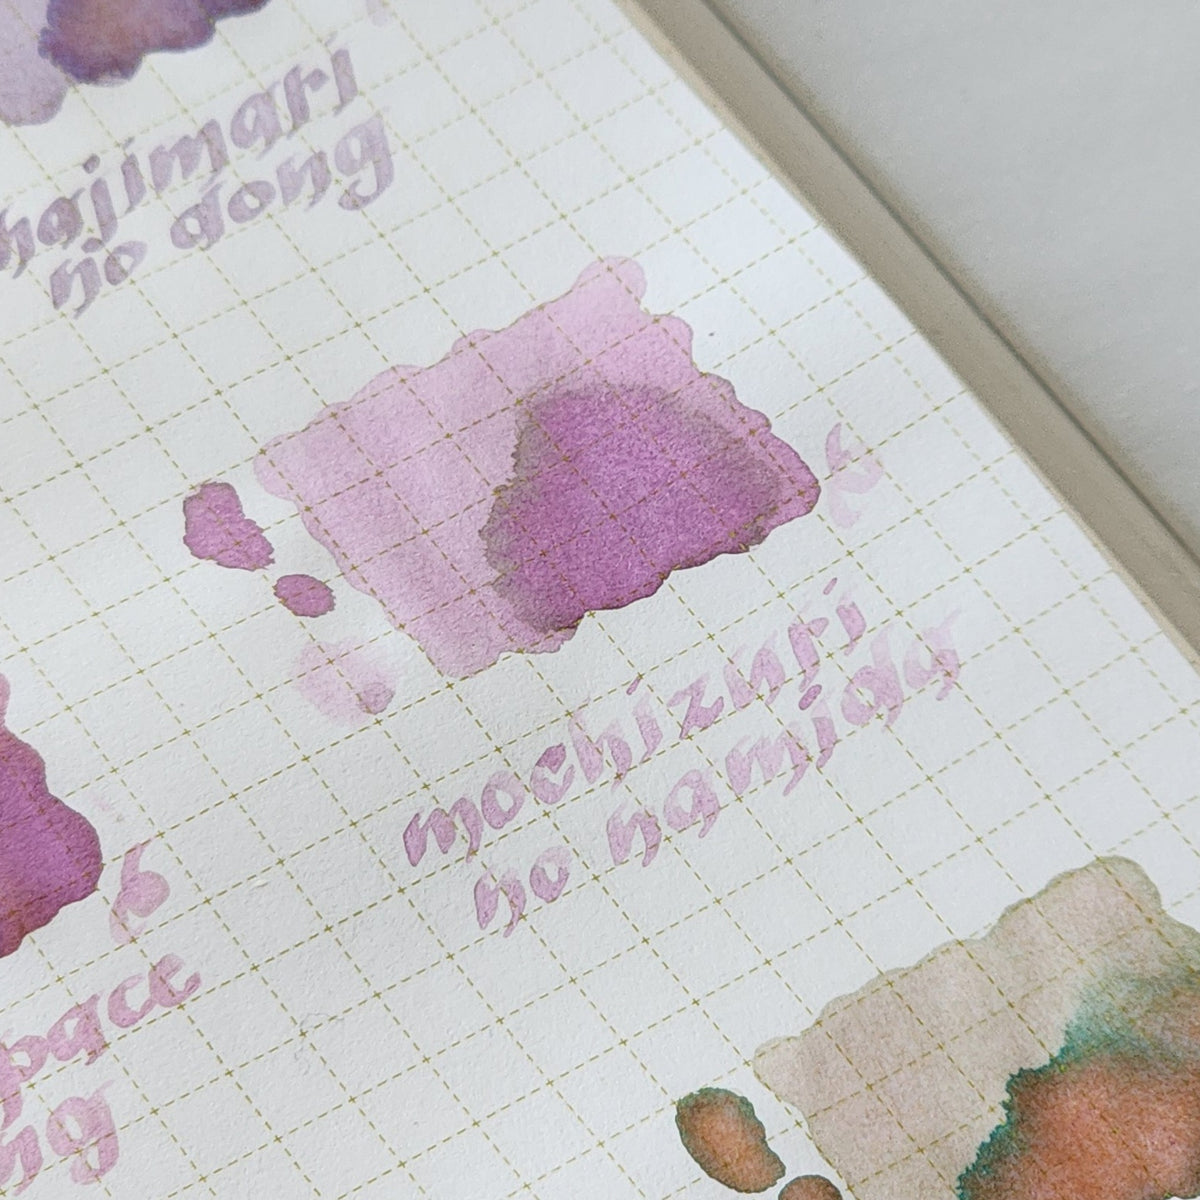 hajimari
no dong
mochizuri
no hamida
pace
ng